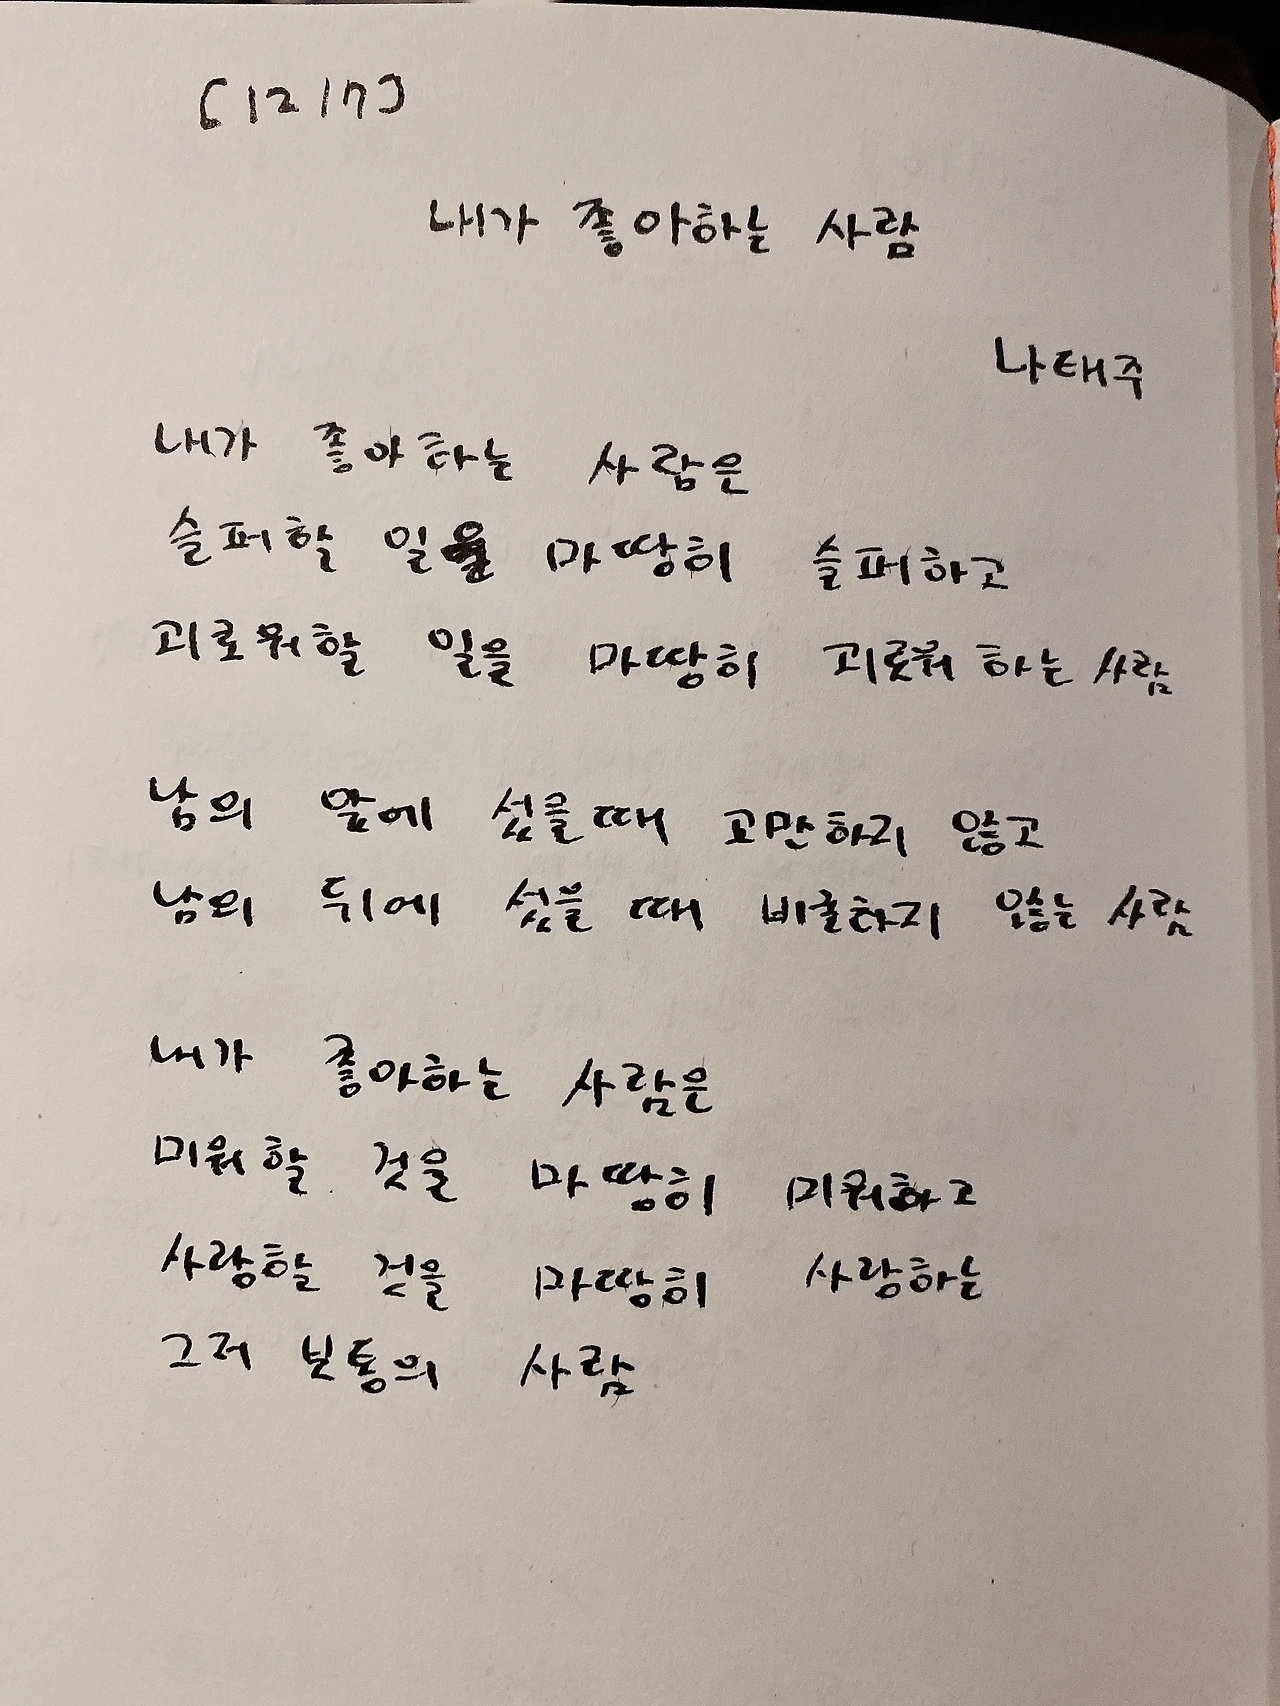 [12/7]
내가 좋아하는 사람
나태주
내가 좋아하는 사람은
슬퍼할 일을 마땅히 슬퍼하고
괴로워할 일을 마땅히 괴로워하는 사람
남의 앞에 섰을 때 교만하지 않고
남의 뒤에 섰을 때 비굴하지 않는 사람
내가 좋아하는 사람은
미워할 것을 마땅히 미워하고
사랑할 것을 마땅히 사랑하는
그저 보통의 사람